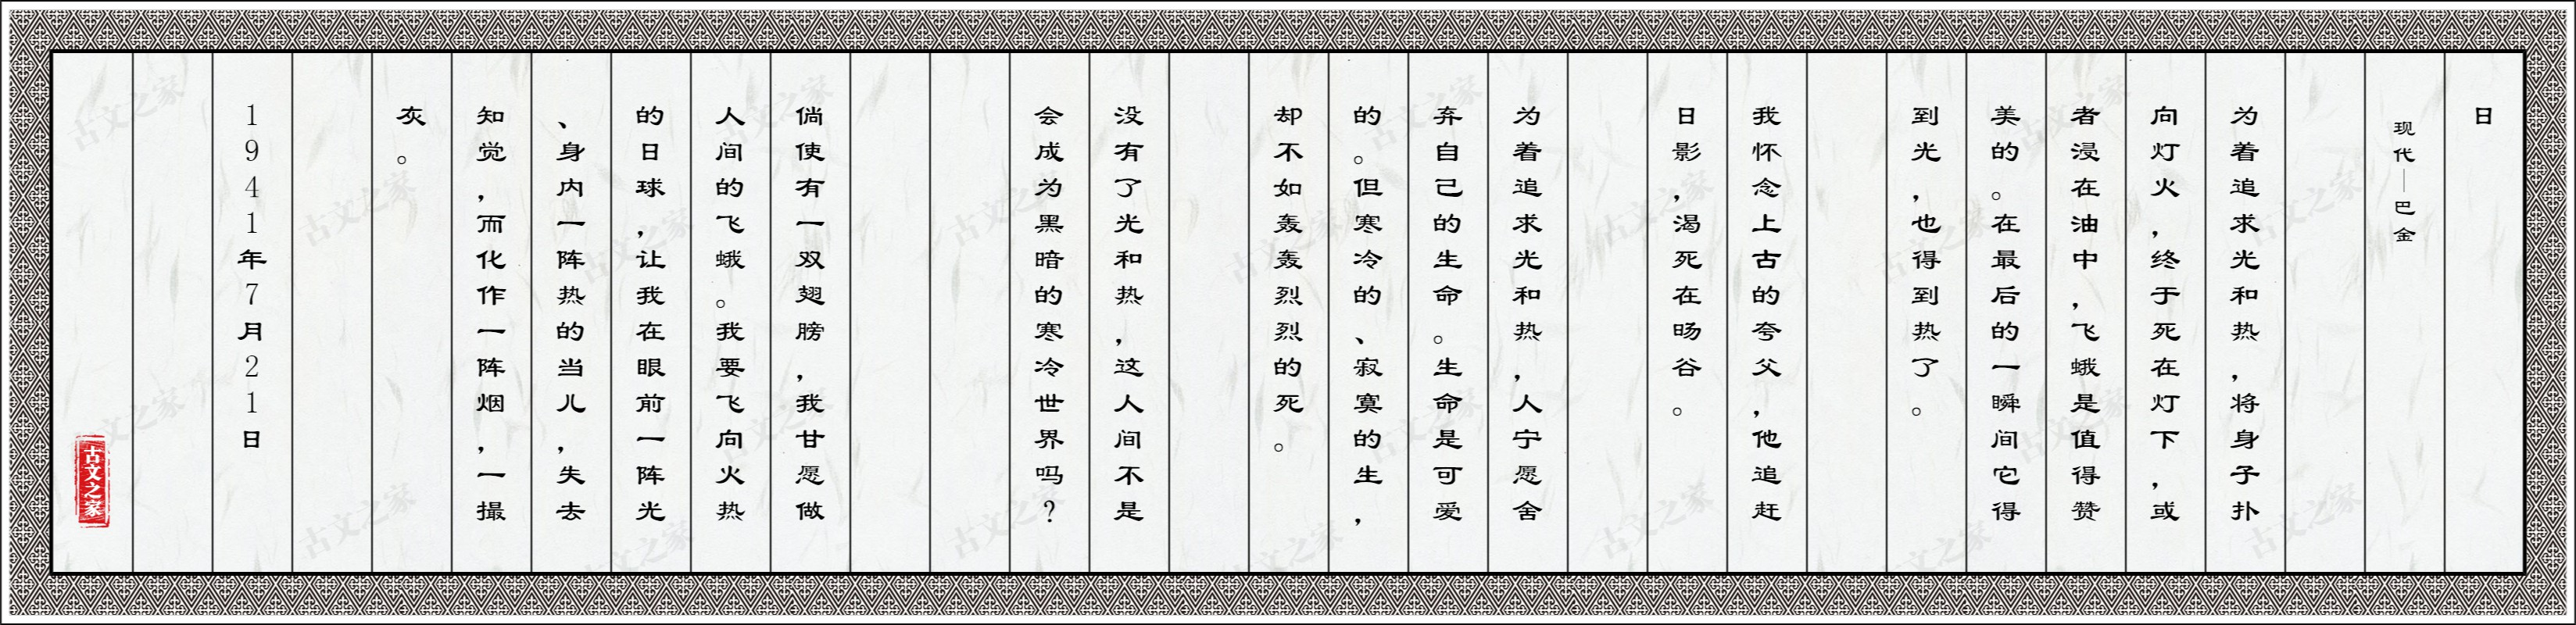 日
现代—巴金
为着追求光和热，将身子扑
向灯火，终于死在灯下，或
者浸在油中，飞蛾是值得赞
美的。在最后的一瞬间它得
到光，也得到热了。
我怀念上古的夸父，他追赶
日影，渴死在旸谷。
为着追求光和热，人宁愿舍
弃自己的生命。生命是可爱
的。但寒冷的、寂寞的生，
却不如轰轰烈烈的死。
没有了光和热，这人间不是
会成为黑暗的寒冷世界吗？
倘使有一双翅膀，我甘愿做
人间的飞蛾。我要飞向火热
的日球，让我在眼前一阵光
、身内一阵热的当儿，失去
知觉，而化作一阵烟，一撮
灰。
1941年7月21日
古文之家